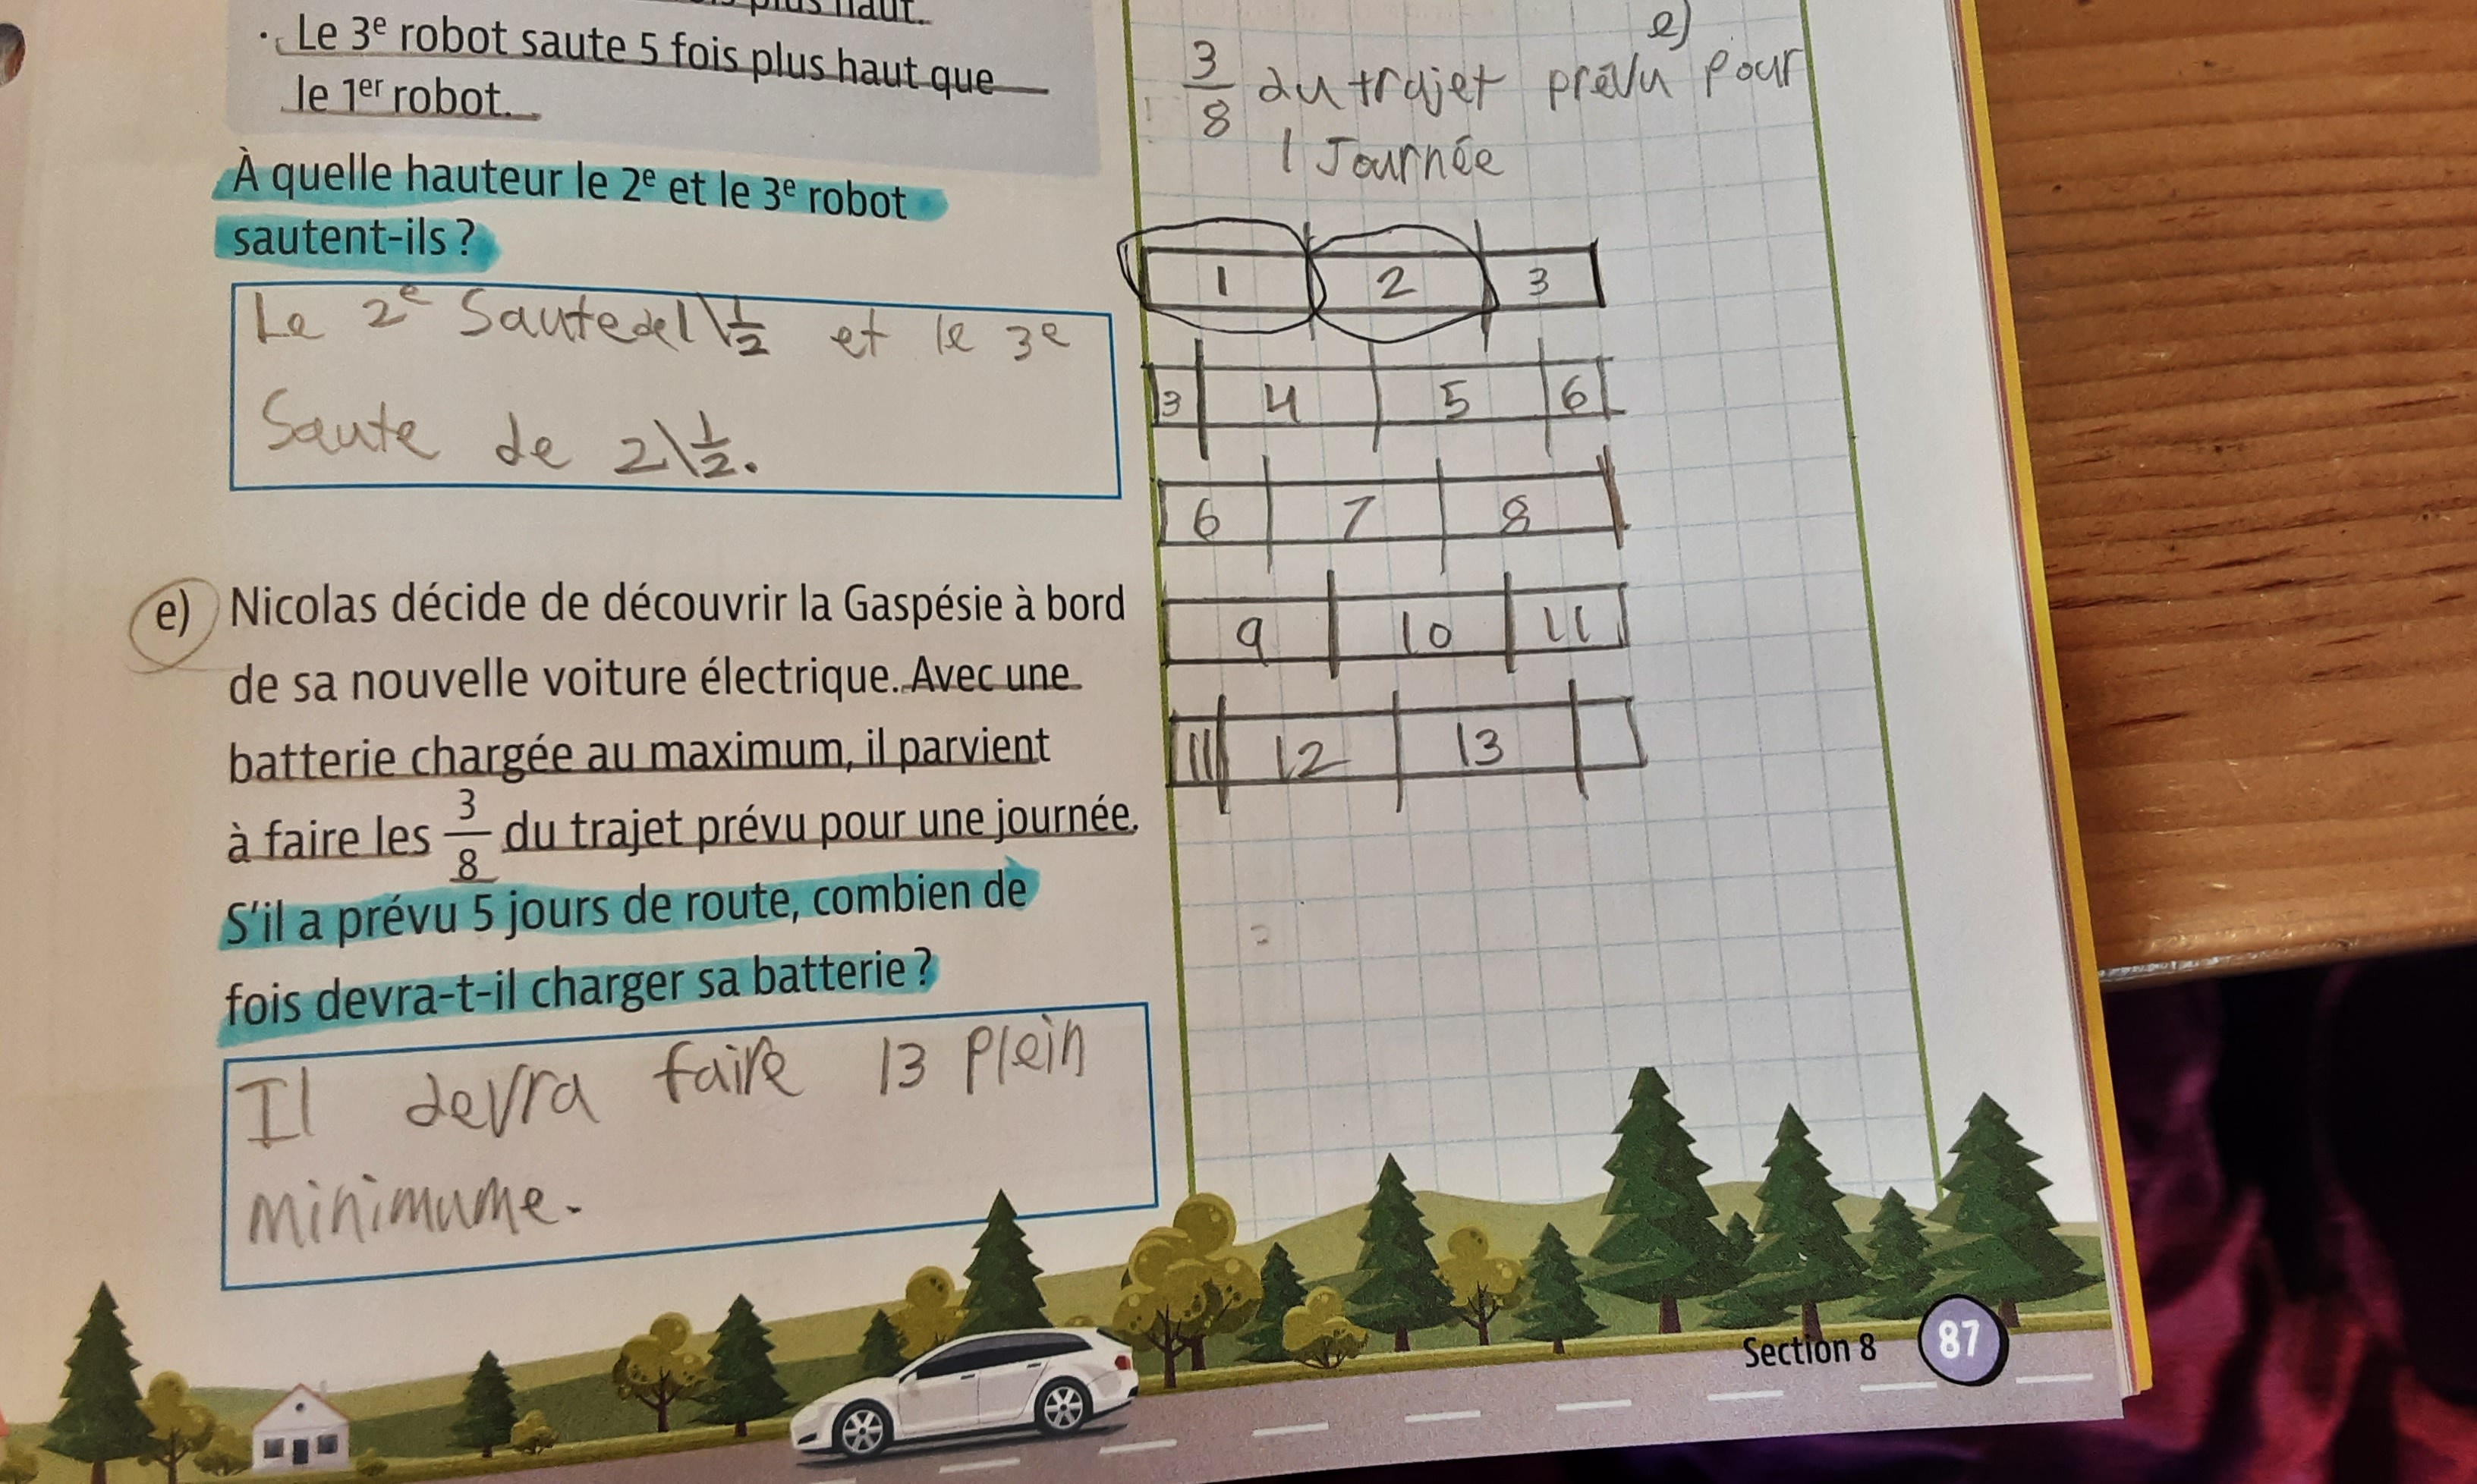 plus haut.
· Le 3e robot saute 5 fois plus haut que
le 1er robot.
À quelle hauteur le 2e et le 3e robot
sautent-ils ?
Le 2e Saute de 1\1/2 et le 3e
Saute de 2\1/2.
e) Nicolas décide de découvrir la Gaspésie à bord
de sa nouvelle voiture électrique. Avec une
batterie chargée au maximum, il parvient
à faire les 3/8 du trajet prévu pour une journée.
S'il a prévu 5 jours de route, combien de
fois devra-t-il charger sa batterie ?
Il devra faire 13 plein
minimume.
e)
3/8 du trajet prévu pour
1 Journée
1 2 3
3 4 5 6
6 7 8
9 10 11
11 12 13
Section 8 87